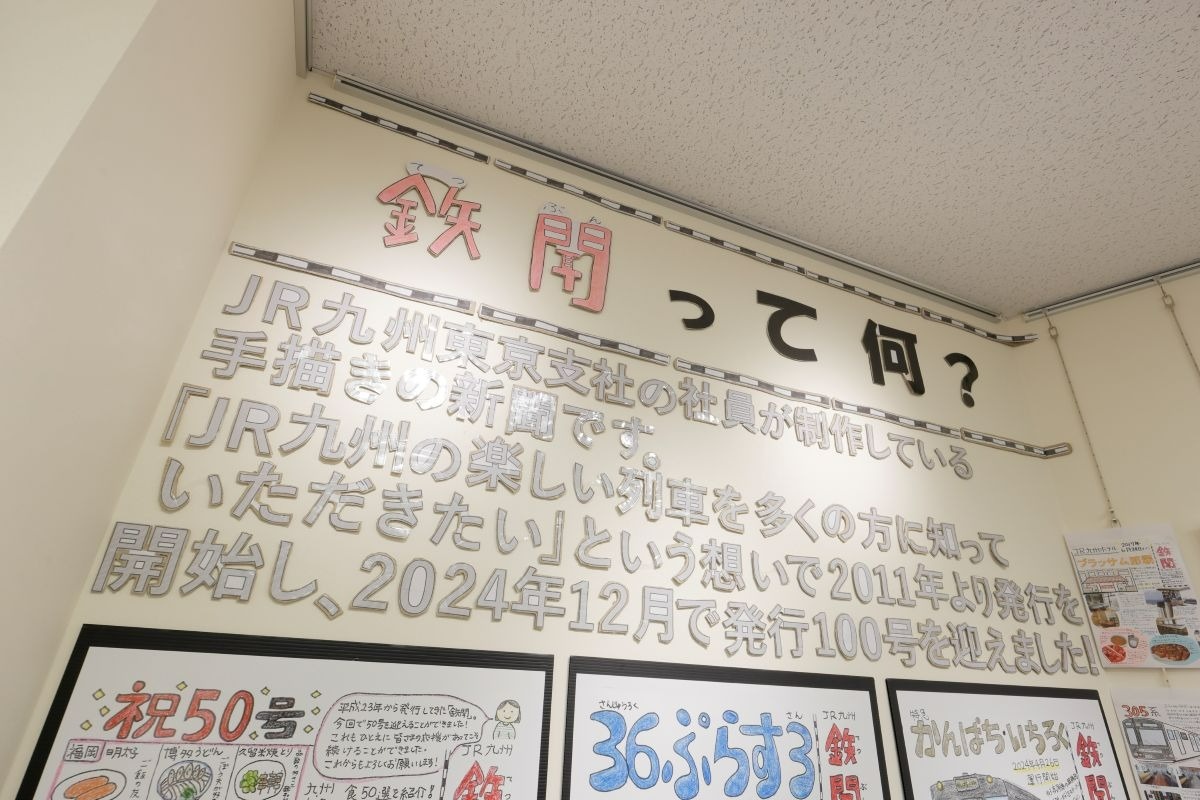 てつ ぶん
鉄聞って何?
JR九州東京支社の社員が制作している
手描きの新聞です。
『JR九州の楽しい列車を多くの方に知って
いただきたい』という想いで2011年より発行を
開始し、2024年12月で発行100号を迎えました!
祝50号
平成23年から発行してきた「鉄聞」。
今回で50号を迎えることができました!
これもひとえに皆さまの応援があってこそ
続けることができました。
これからもよろしくお願いします!
福岡 明太子
博多うどん
久留米焼とり
JR九州
鉄
九州
食50選を紹介!
さんじゅうろく さん
36ぷらす3
JR九州
鉄聞
特急
かんぱち・いちろく
2024年4月26日
運行開始
JR九州
鉄聞
JR九州ホテル
ブラッサム那覇
鉄聞
305系